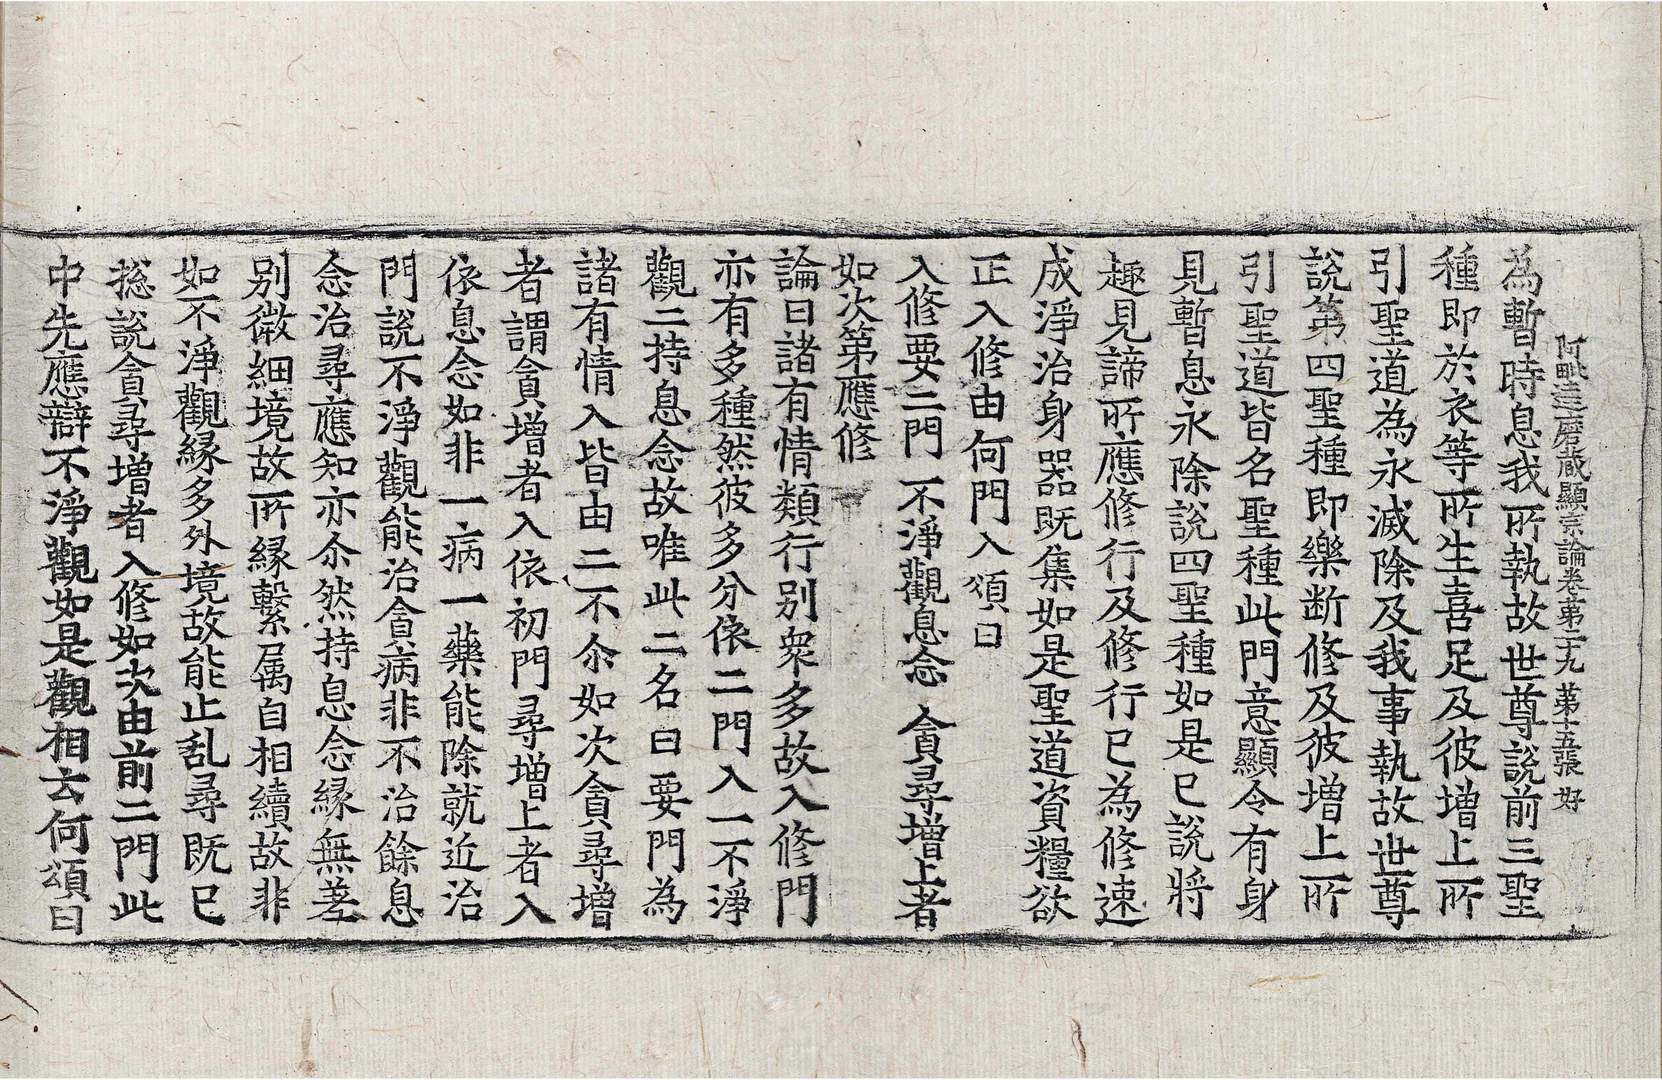 阿毗達磨藏顯宗論卷第二十九 第十五張 好
為暫時息我所執故世尊說前三聖
種即於衣等所生喜足及彼增上所
引聖道為永滅除及我事執故世尊
說第四聖種即樂断修及彼增上所
引聖道皆名聖種此門意顯令有身
見暫息永除說四聖種如是已說將
趣見諦所應修行及修行已為修速
成淨治身器既集如是聖道資糧欲
正入修由何門入頌曰
入修要二門 不淨觀息念 貪尋增上者
如次第應修
論曰諸有情類行別衆多故入修門
亦有多種然彼多分依二門入一不淨
觀二持息念故唯此二名曰要門為
諸有情入皆由二不尒如次貪尋增
者謂貪增者入依初門尋增上者入
依息念如非一病一藥能除就近治
門說不淨觀能治貪病非不治餘息
念治尋應知亦尒然持息念緣無差
別微細境故所緣繫属自相續故非
如不淨觀緣多外境故能止乱尋既已
揔說貪尋增者入修如次由前二門此
中先應辯不淨觀如是觀相云何頌曰